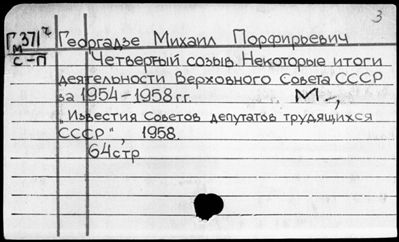 3
Г371 Георгадзе Михаил Порфирьевич
М
С-П Четвертый созыв. Некоторые итоги
деятельности Верховного Совета СССР
за 1954-1958 г.г. М.,
„Известия Советов депутатов трудящихся
СССР", 1958.
64стр